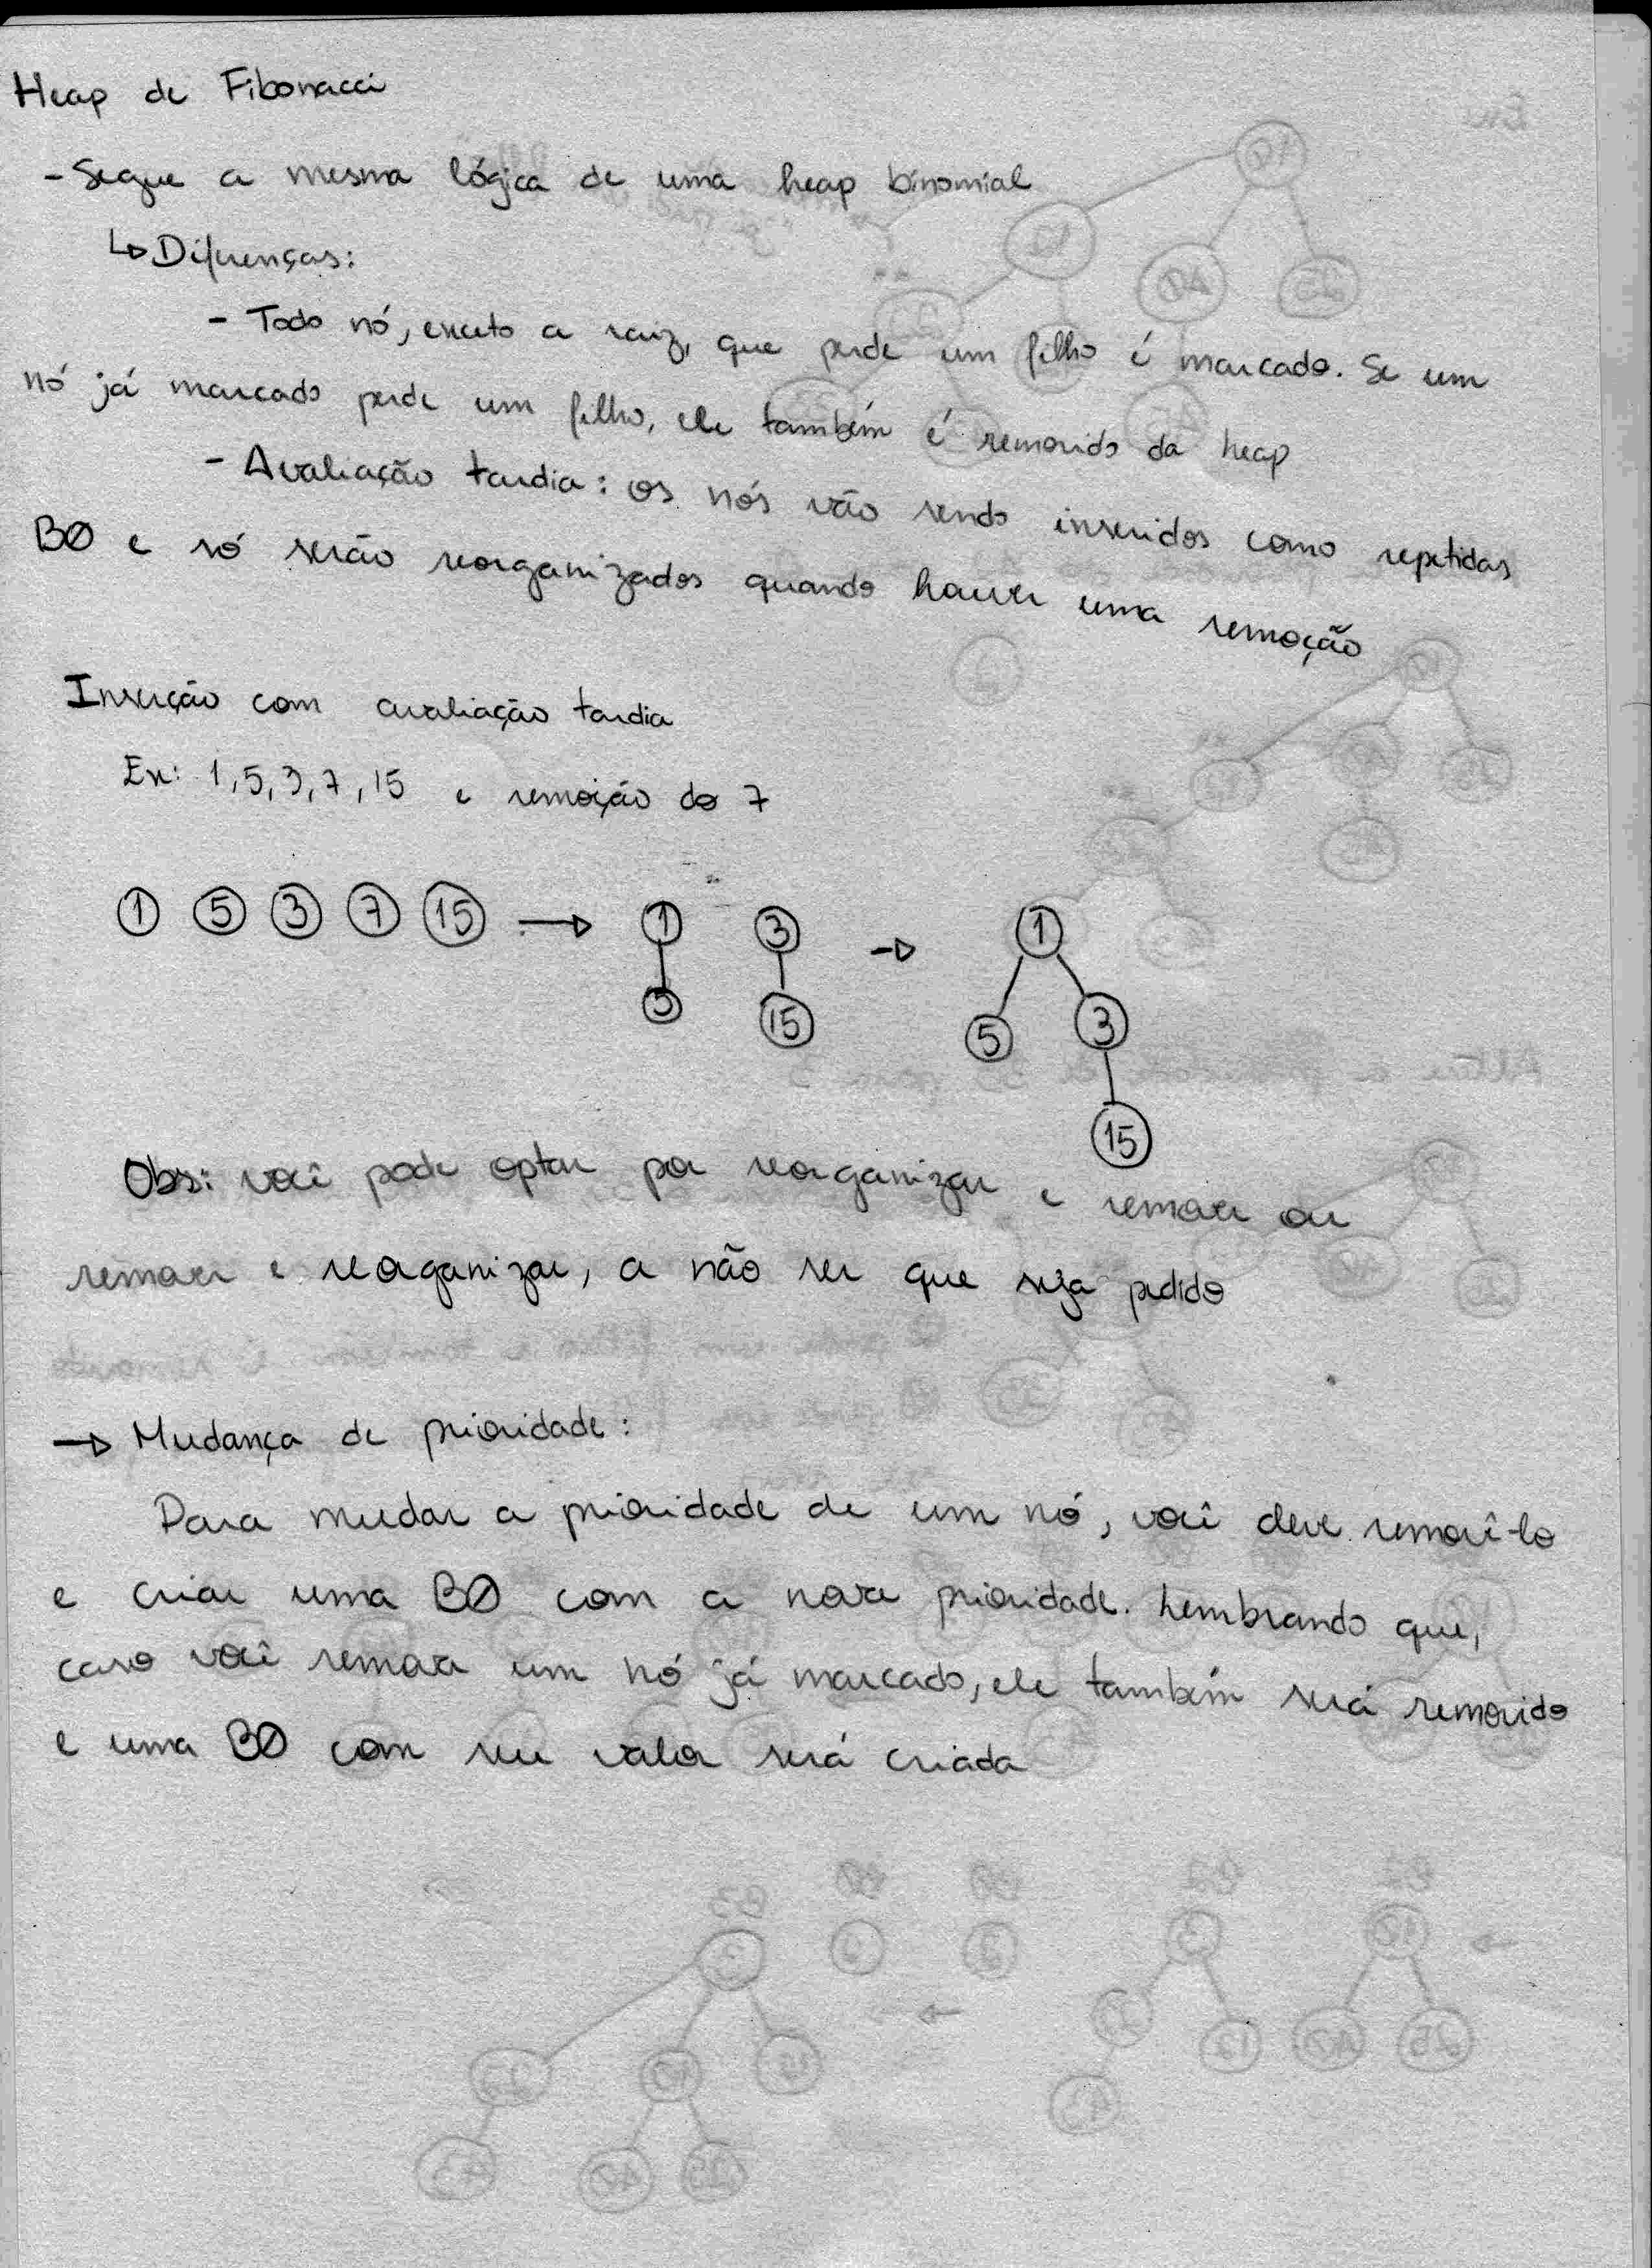 Heap de Fibonacci
- Segue a mesma lógica de uma heap binomial
↳ Diferenças:
- Todo nó, exceto a raiz, que perde um filho é marcado. Se um
nó já marcado perde um filho, ele também é removido da heap
- Avaliação tardia: os nós vão sendo inseridos como repetidas
BØ e só serão reorganizados quando houver uma remoção
Inserção com avaliação tardia
Ex: 1, 5, 3, 7, 15 e remoção do 7
1 5 3 7 15 → 1 3 → 1
5 15 5 3
15
Obs: você pode optar por reorganizar e remover ou
remover e reorganizar, a não ser que seja pedido
→ Mudança de prioridade:
Para mudar a prioridade de um nó, você deve removê-lo
e criar uma BØ com a nova prioridade. Lembrando que,
caso você remova um nó já marcado, ele também será removido
e uma BØ com seu valor será criada